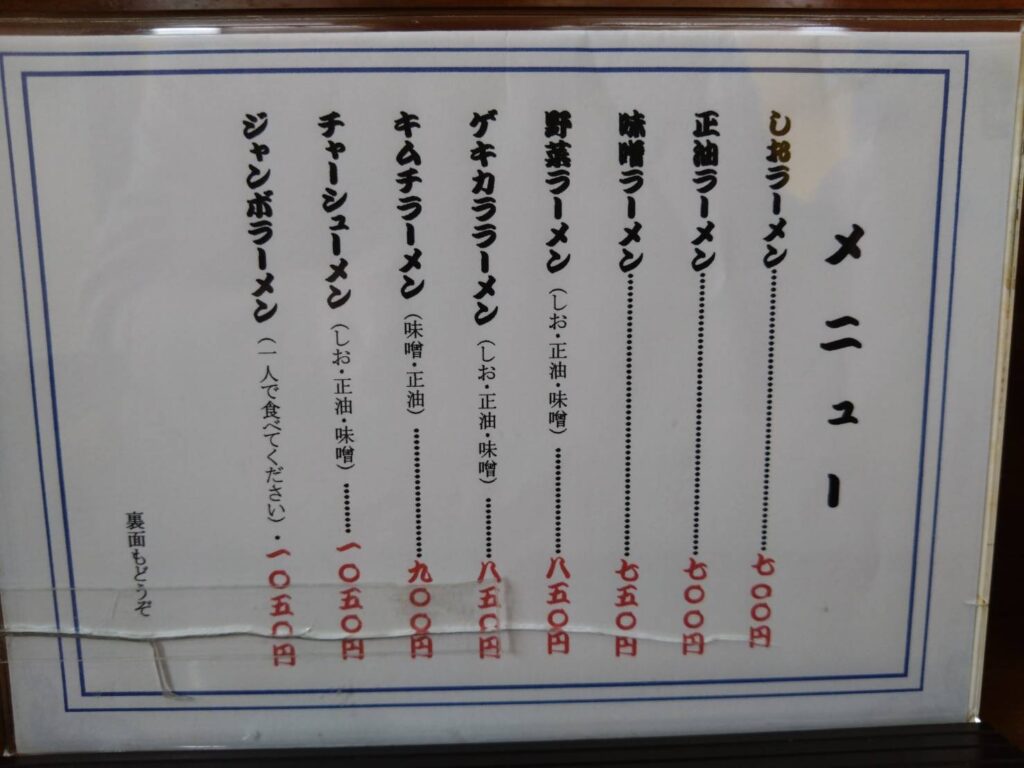 メニュー
しおラーメン…………………………七〇〇円
正油ラーメン…………………………七〇〇円
味噌ラーメン…………………………七五〇円
野菜ラーメン（しお・正油・味噌）…………八五〇円
ゲキカララーメン（しお・正油・味噌）………八五〇円
キムチラーメン（味噌・正油）……………九〇〇円
チャーシューメン（しお・正油・味噌）………一〇五〇円
ジャンボラーメン（一人で食べてください）・一〇五〇円
裏面もどうぞ